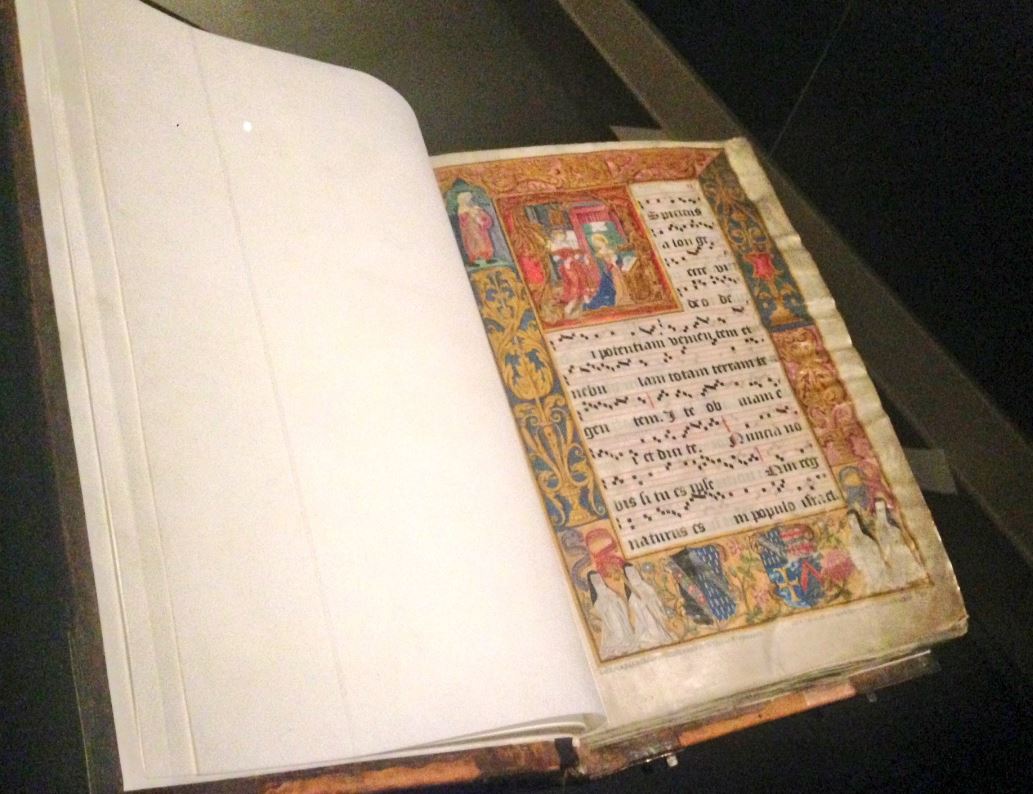 Spiciens
a lon ge
ecce vi
deo de
i potentiam venien tem et
nebu lam totam terram te
gen tem. I te ob uiam e
i et dici te. Nuncia no
bis si tu es ipse Qui reg
naturus es in populo israel.